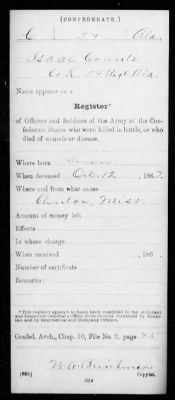 (CONFEDERATE.)
C 54 Ala.
Isaac Counts
Co. K, 54 Regt Ala.
Name appears on a
Register*
of Officers and Soldiers of the Army of the Confederate States who were killed in battle, or who
died of wounds or disease.
Where born Tenn
When deceased Oct. 12, 1862.
Where and from what cause
Clinton, Miss.
Amount of money left
Effects
In whose charge
When received 186 .
Number of certificate
Remarks:
*This register appears to have been compiled in the Adjutant
and Inspector General's office from reports furnished by Hospitals and by Regimental and Company officers.
Confed. Arch., Chap. 10, File No. 2, page
(635)
Copyist.